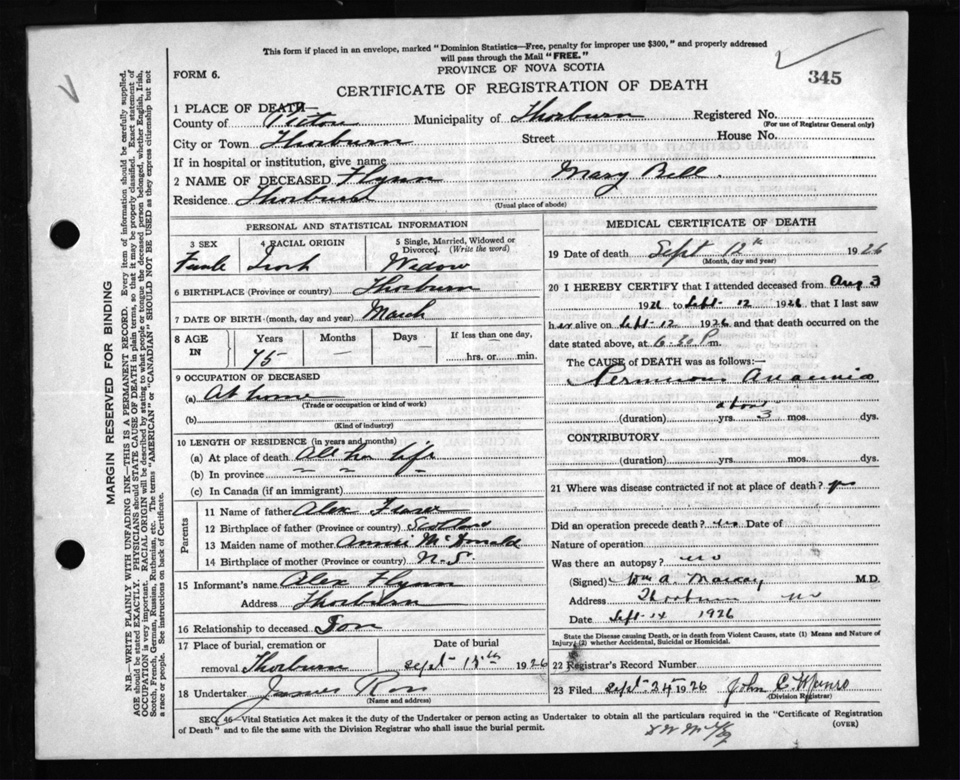 This form if placed in an envelope, marked "Dominion Statistics—Free, penalty for improper use $300," and properly addressed
will pass through the Mail "FREE."
PROVINCE OF NOVA SCOTIA
FORM 6.
345
CERTIFICATE OF REGISTRATION OF DEATH
1 PLACE OF DEATH
County of Pictou Municipality of Thorburn Registered No.
(For use of Registrar General only)
City or Town Thorburn Street House No.
If in hospital or institution, give name
2 NAME OF DECEASED Flynn Mary Bell
Residence Thorburn
(Usual place of abode)
PERSONAL AND STATISTICAL INFORMATION
3 SEX 4 RACIAL ORIGIN 5 Single, Married, Widowed or Divorced. (Write the word)
Female Irish Widow
6 BIRTHPLACE (Province or country) Thorburn
7 DATE OF BIRTH (month, day and year) March
8 AGE IN Years Months Days If less than one day,
75 — — hrs. or min.
9 OCCUPATION OF DECEASED
(a) At home
(Trade or occupation or kind of work)
(b)
(Kind of industry)
10 LENGTH OF RESIDENCE (in years and months)
(a) At place of death All her life
(b) In province " " "
(c) In Canada (if an immigrant)
Parents
11 Name of father Alex Fraser
12 Birthplace of father (Province or country) Scotland
13 Maiden name of mother Annie McDonald
14 Birthplace of mother (Province or country) N.S.
15 Informant's name Alex Flynn
Address Thorburn
16 Relationship to deceased Son
17 Place of burial, cremation or removal Thorburn
Date of burial Sept 15th 1926
18 Undertaker James Ross
(Name and address)
MEDICAL CERTIFICATE OF DEATH
19 Date of death Sept 12th 1926
(Month, day and year)
20 I HEREBY CERTIFY that I attended deceased from Aug 3
1926 to Sept 12 1926, that I last saw
her alive on Sept 12 1926 and that death occurred on
date stated above, at 6.30 P m.
The CAUSE of DEATH was as follows:—
Pernicious Anaemia
about
(duration) yrs. 3 mos. dys.
CONTRIBUTORY
(duration) yrs. mos. dys.
21 Where was disease contracted if not at place of death? yes
Did an operation precede death? no Date of
Nature of operation
Was there an autopsy? no
(Signed) Wm A. Mackay M.D.
Address Thorburn NS
Date Sept 14 1926
State the Disease causing Death, or in death from Violent Causes, state (1) Means and Nature of
Injury, (2) whether Accidental, Suicidal or Homicidal.
22 Registrar's Record Number
23 Filed Sept 24 1926 John C. Munro
(Division Registrar)
SEC. 46—Vital Statistics Act makes it the duty of the Undertaker or person acting as Undertaker to obtain all the particulars required in the "Certificate of Registration
of Death" and to file the same with the Division Registrar who shall issue the burial permit. (OVER)
MARGIN RESERVED FOR BINDING
N.B.—WRITE PLAINLY WITH UNFADING INK—THIS IS A PERMANENT RECORD. Every item of information should be carefully supplied.
AGE should be stated EXACTLY. PHYSICIANS should STATE CAUSE OF DEATH in plain terms, so that it may be properly classified. Exact statement of
OCCUPATION is very important. RACIAL ORIGIN will be described by stating to what people or tongue the deceased person belonged, whether English, Irish,
Scotch, French, German, Russian, Ruthenian, etc. The terms "AMERICAN" or "CANADIAN" SHOULD NOT BE USED as they express citizenship but not
a race or people. See instructions on back of Certificate.